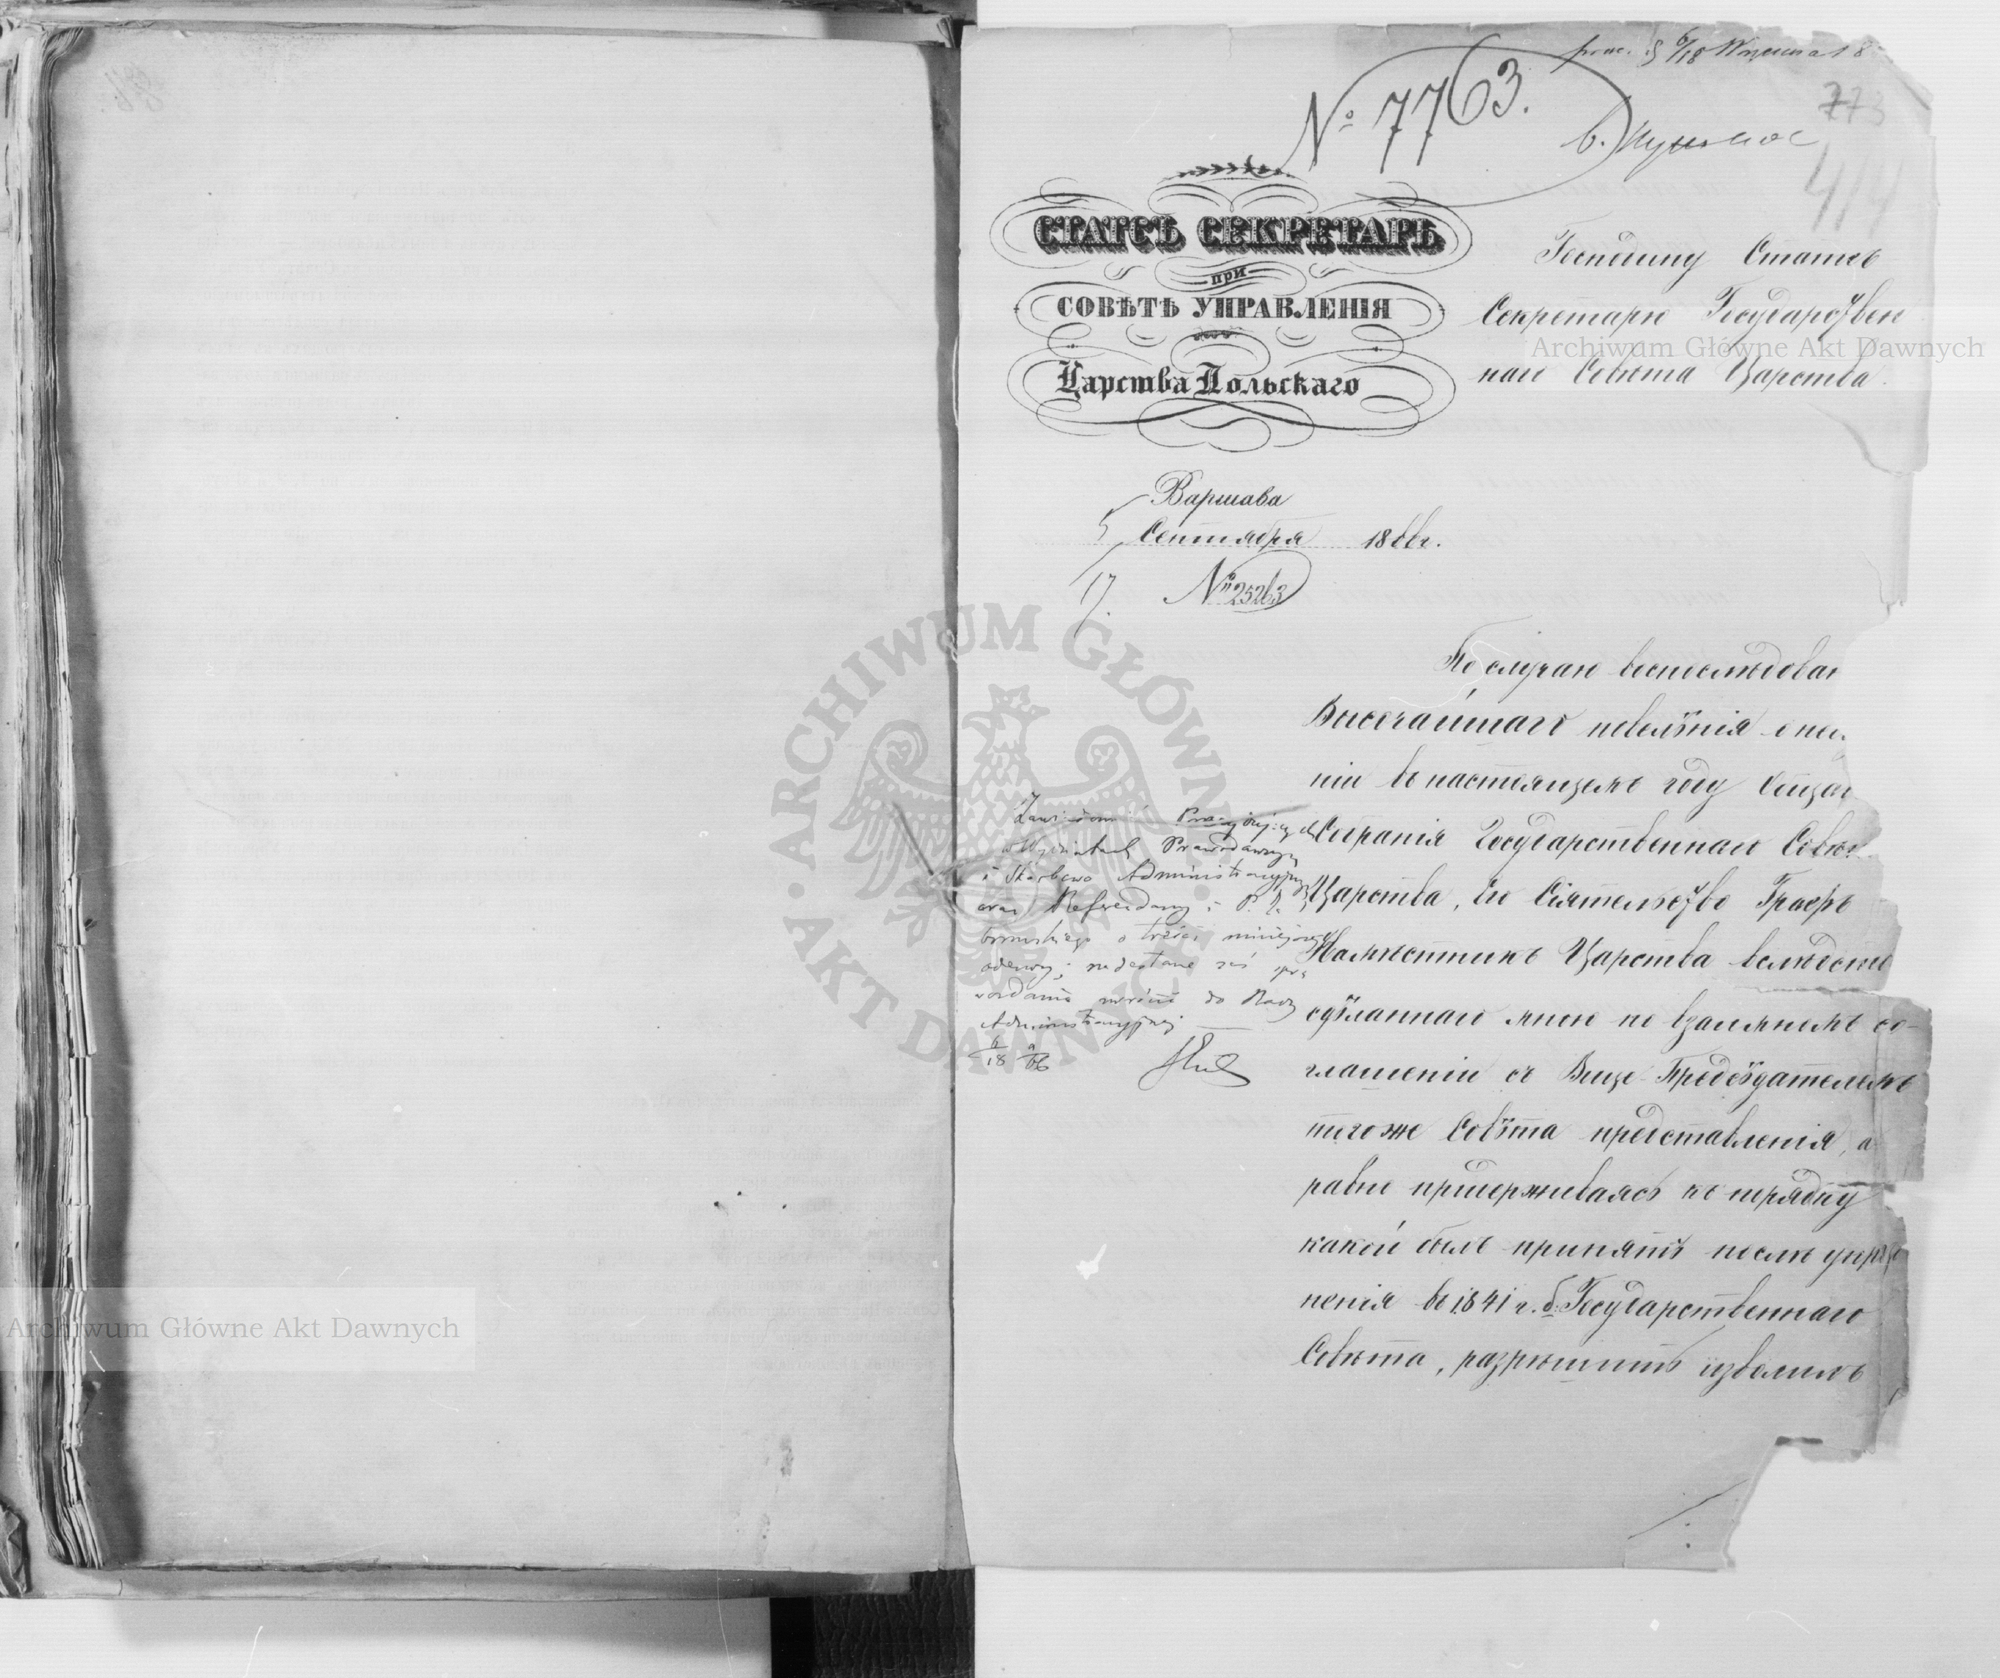 № 7763.
773
СТАТСЪ СЕКРЕТАРЬ
при
СОВѢТѢ УПРАВЛЕНІЯ
Царства Польскаго
Господину Статсъ
Секретарю Государствен
наго Совѣта Царства.
Варшава
5
Сентября 1866 г.
17.
№ 25263
По случаю воспослѣдован
Высочайшаго повелѣнія о
ніи въ настоящемъ году Общаго
Собранія Государственнаго Совѣт
Царства, Его Сіятельство Графъ
Намѣстникъ Царства вслѣдств
сдѣланнаго мною по взаимномъ со-
глашеніи съ Вице-Предсѣдателемъ
тогоже Совѣта представленія, а
равно придерживаясь къ порядку
какой былъ принятъ послѣ упраз
ненія въ 1841 г. б. Государственнаго
Совѣта, разрѣшить изволилъ
w Wydziałach Prawodawczym
i Skarbowo Administracyjnym
oraz Referendarzy i P.
o treści niniejszej
odezwy; nadesłane zaś spra
wozdania zwrócić do Rady
Administracyjnej
6/18 9/66
Archiwum Główne Akt Dawnych
Archiwum Główne Akt Dawnych
ARCHIWUM GŁÓWNE AKT DAWNYCH